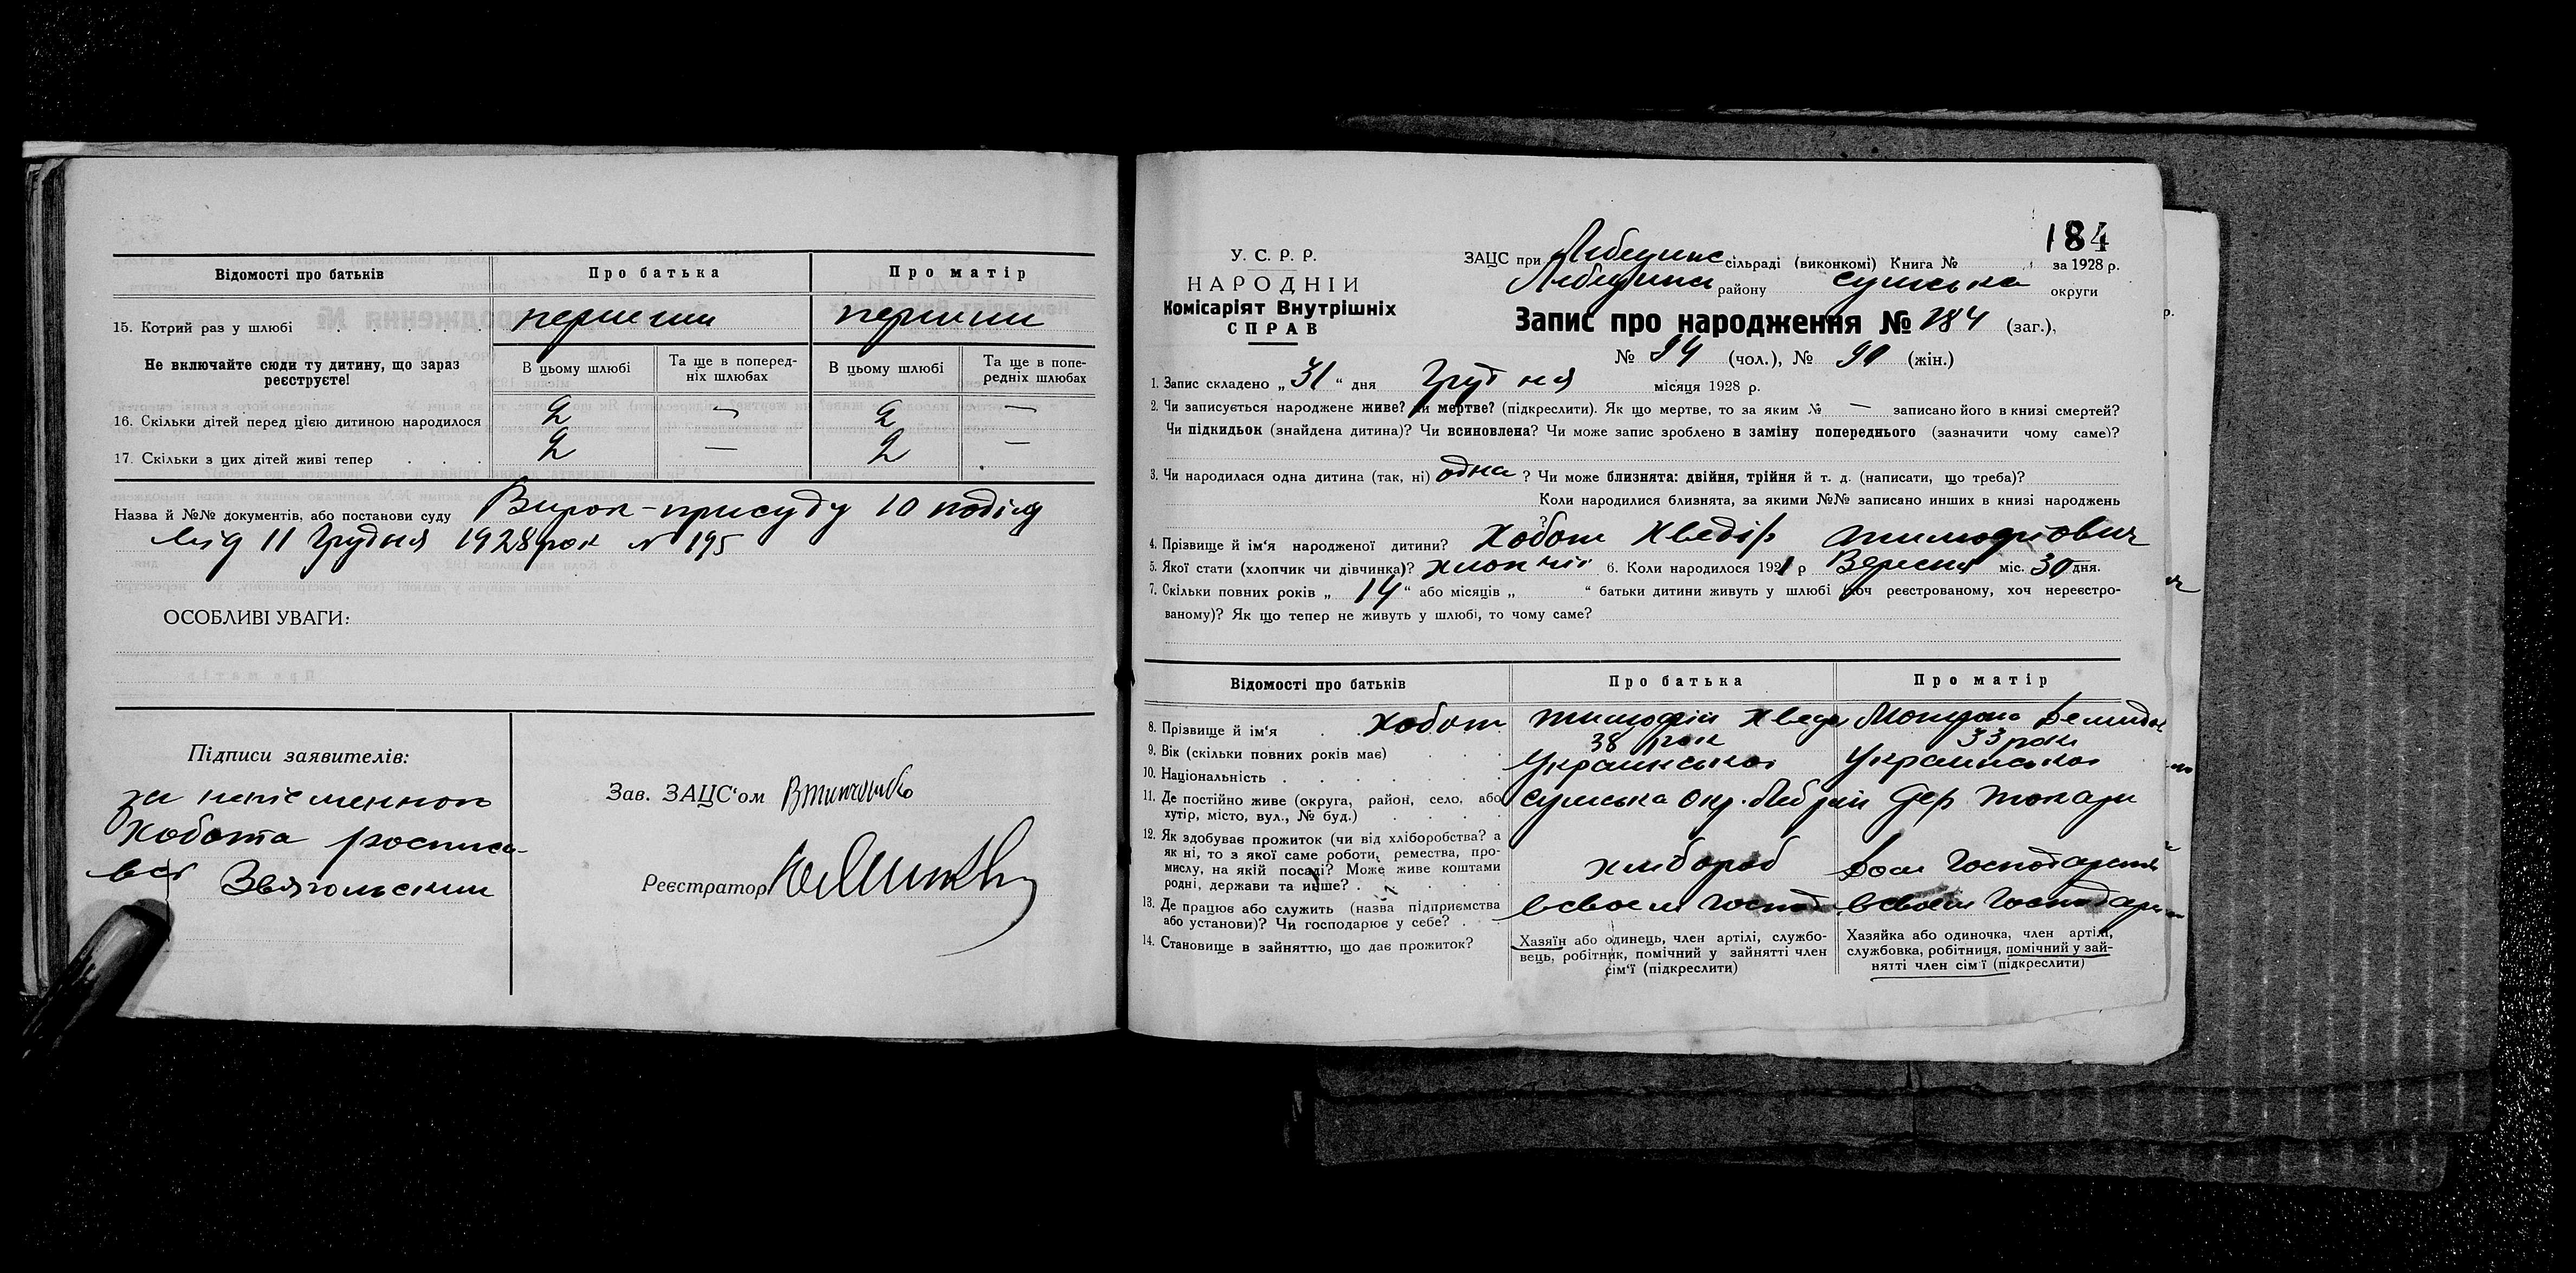 Відомості про батьків Про батька Про матір
15. Котрий раз у шлюбі
Не включайте сюди ту дитину, що зараз реєструєте!
В цьому шлюбі Та ще в попередніх шлюбах В цьому шлюбі Та ще в попередніх шлюбах
16. Скільки дітей перед цією дитиною народилося 2 — 2 —
17. Скільки з цих дітей живі тепер 2 — 2 —
Назва й №№ документів, або постанови суду Вирок-присуду 10 поділу
від 11 Грудня 1928 рок № 195
ОСОБЛИВІ УВАГИ:
Підписи заявителів:
за неписменного
Хобота росписа-
вся Звягольский
Зав. ЗАЦС'ом
Реєстратор
184
У. С. Р. Р.
НАРОДНІЙ
Комісаріят Внутрішніх
СПРАВ
ЗАЦС при Лебединс сільраді (виконкомі) Книга № за 1928 р.
Лебединск району Сумська округи
Запис про народження № 184 (заг.),
№ 94 (чол.), № 90 (жін.)
1. Запис складено „31“ дня Грудня місяця 1928 р.
2. Чи записується народжене живе? чи мертве? (підкреслити). Як що мертве, то за яким № — записано його в книзі смертей?
Чи підкидьок (знайдена дитина)? Чи всиновлена? Чи може запис зроблено в заміну попереднього (зазначити чому саме)?
3. Чи народилася одна дитина (так, ні) одна ? Чи може близнята: двійня, трійня й т. д. (написати, що треба)?
Коли народилися близнята, за якими №№ записано инших в книзі народжень
?
4. Прізвище й ім'я народженої дитини? Хобот Хведір Тимофіович
5. Якої стати (хлопчик чи дівчинка)? хлопчик 6. Коли народилося 1921 р Вересня міс. 30 дня.
7. Скільки повних років „14“ або місяців „ “ батьки дитини живуть у шлюбі (хоч реєстрованому, хоч нереєстро-
ваному)? Як що тепер не живуть у шлюбі, то чому саме?
Відомості про батьків Про батька Про матір
8. Прізвище й ім'я Хобот Тимофій Хведо Мотрона
9. Вік (скільки повних років має) 38 рок 33 рок
10. Національність Українська Українська
11. Де постійно живе (округа, район, село, або хутір, місто, вул., № буд.) Сумська Окр. Леб рай Дер Токари
12. Як здобуває прожиток (чи від хліборобства? а як ні, то з якої саме роботи, ремества, промислу, на якій посаді? Може живе коштами родні, держави та инше? хлибороб Дом Господарств
13. Де працює або служить (назва підприємства або установи)? Чи господарює у себе? в своем Господ в своем Господар
14. Становище в зайняттю, що дає прожиток?
Хазяїн або одинець, член артілі, службовець, робітник, помічний у зайнятті член сім'ї (підкреслити)
Хазяйка або одиночка, член артілі, службовка, робітниця, помічний у зайнятті член сім'ї (підкреслити)